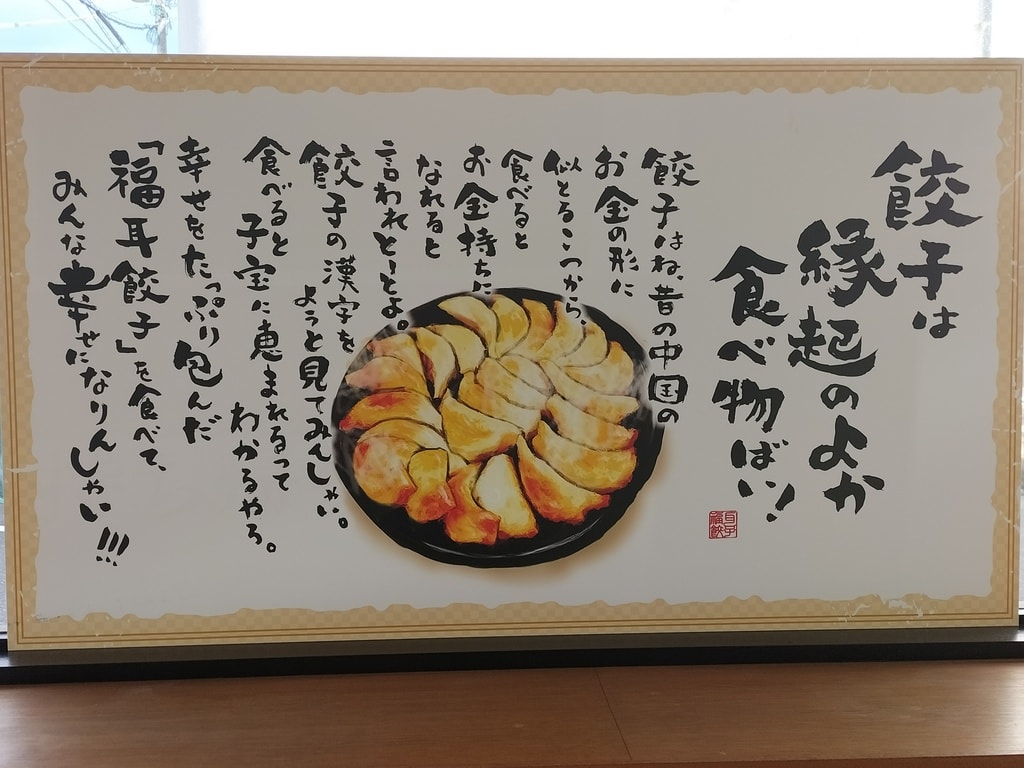 餃子は
縁起のよか
食べ物ばい!
餃子はね、昔の中国の
お金の形に
似とるこつから、
食べると
お金持ちに
なれると
言われとーとよ。
餃子の漢字を
ようと見てみんしゃい。
食べると
子宝に恵まれるって
わかるやろ。
幸せをたっぷり包んだ
「福耳餃子」を食べて、
みんな幸せになりんしゃい!!!